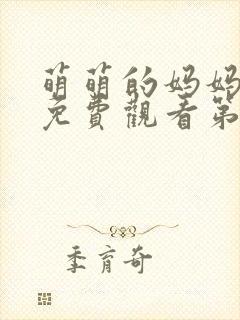 萌萌的妈妈
免費觀看第
季育奇